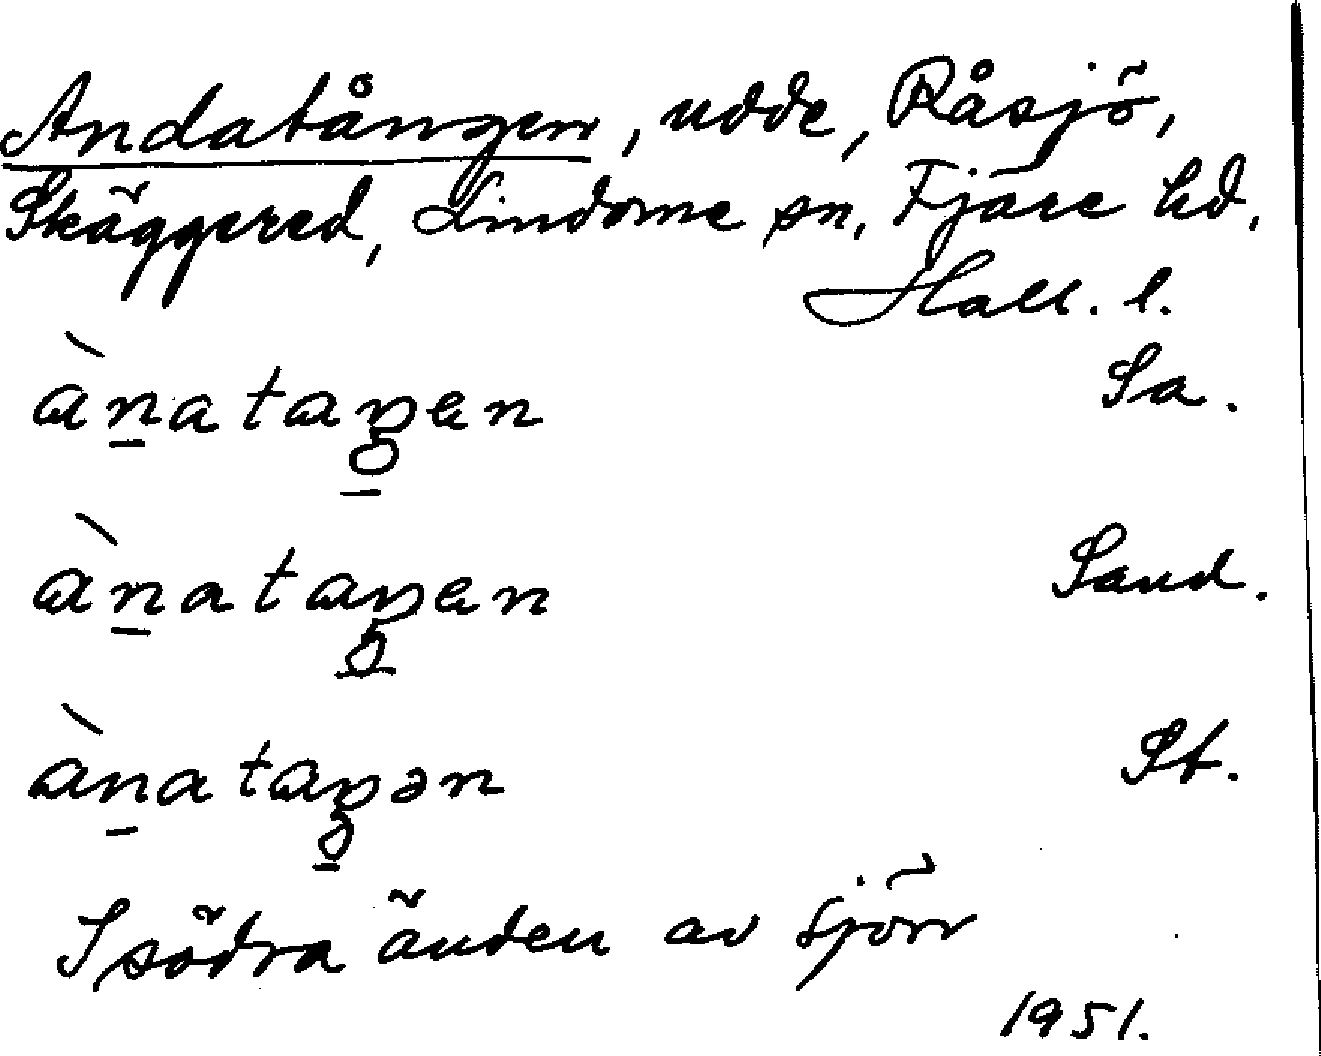 Andatången, udde, Råsjö,
Skäggered, Lindome sn, Fjäre hd,
Hall. l.
ànataŋen Sa.
ànataŋen Sand.
ànataŋən St.
I södra änden av sjön
1951.